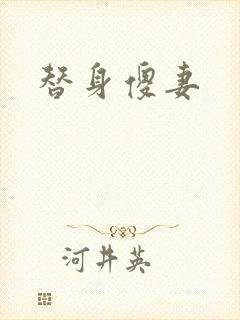 替身傻妻
河井英